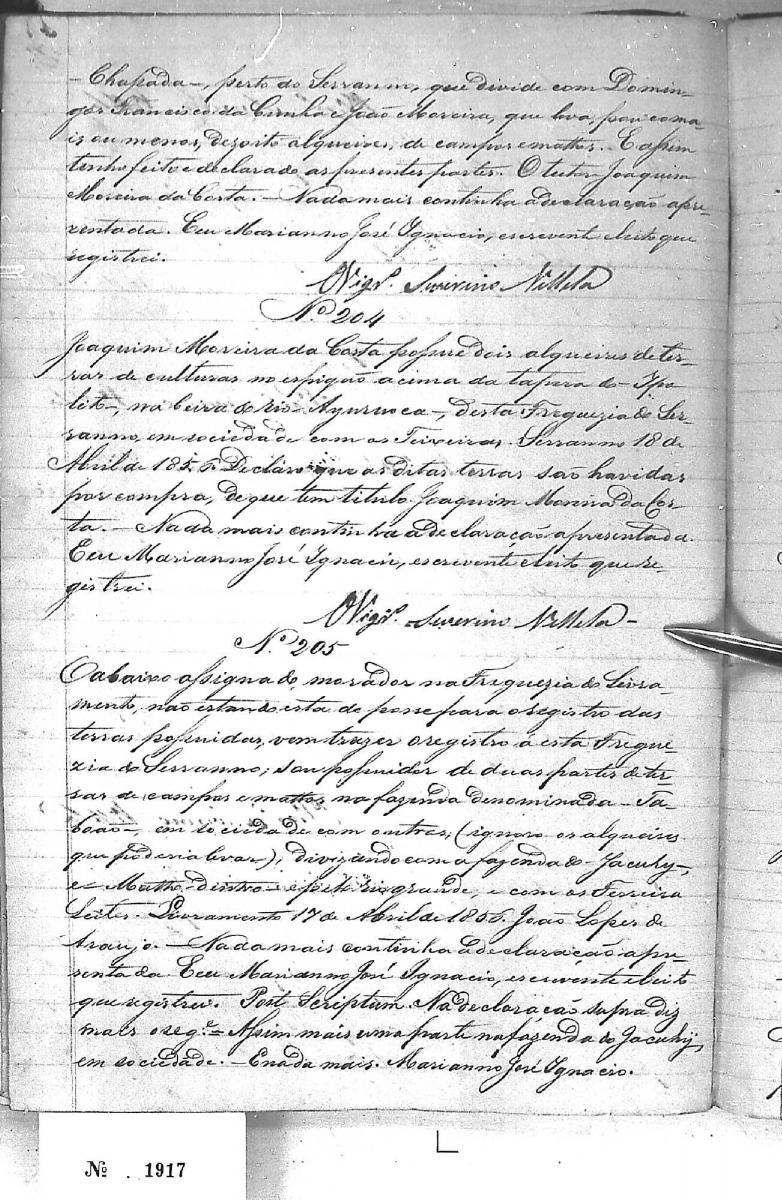 -Chapada-, perto do Serranno, que divide com Domin-
gos Francisco da Cunha e João Moreira, que leva, pouco ma-
is ou menos, desoito alqueires, de campos e mattos. E assim
tenho feito e declarado as presentes partes. O tutor Joaquim
Moreira da Costa. - Nada mais continha a declaração apre-
zentada. Eeu Marianno José Ignacio, escrevente eleito que
registrei.
O Vigr.º Severino Villela
N.º 204
Joaquim Moreira da Costa possue dois alqueires de ter-
ras de culturas no espigão acima da tapera do - Ypo-
lito-, na beira do rio - Ayuruoca -, desta Freguezia do Ser-
ranno, em sociedade com os Teixeiras. Serranno 18 de
Abril de 1856. Declaro que as ditas terras são havidas
por compra, de que tem titulo. Joaquim Moreira da Cos-
ta. - Nada mais continha a declaração apresentada.
Eeu Marianno José Ignacio, escrevente eleito que re-
gistrei.
O Vigr.º Severino Villela -
N.º 205
O abaixo assignado, morador na Freguezia do Livra-
mento, não estando esta de posse para o registro das
terras possuidas, vem trazer o registro á esta Fregue-
zia do Serranno; sou possuidor de duas partes de ter-
ras de campos e mattos na fazenda denominada - Ta-
boão -, em sociedade com outros, (ignoro os alqueires
que poderia levar), divizando com a fazenda do - Jacuhy -,
e - Matto-dentro - e pelo rio grande, e com os Ferreira
Leites. Livramento 17 de Abril de 1856. João Lopes de
Araujo. - Nada mais continha a declaração apre-
zentada Eeu Marianno José Ignacio, escrevente eleito
que registrei. Post Scriptum. Na declaração supra diz
mais o seg.e = Assim mais uma parte na fazenda do Jacuhy,
em sociedade. - E nada mais. Marianno José Ignacio.
Nº 1917